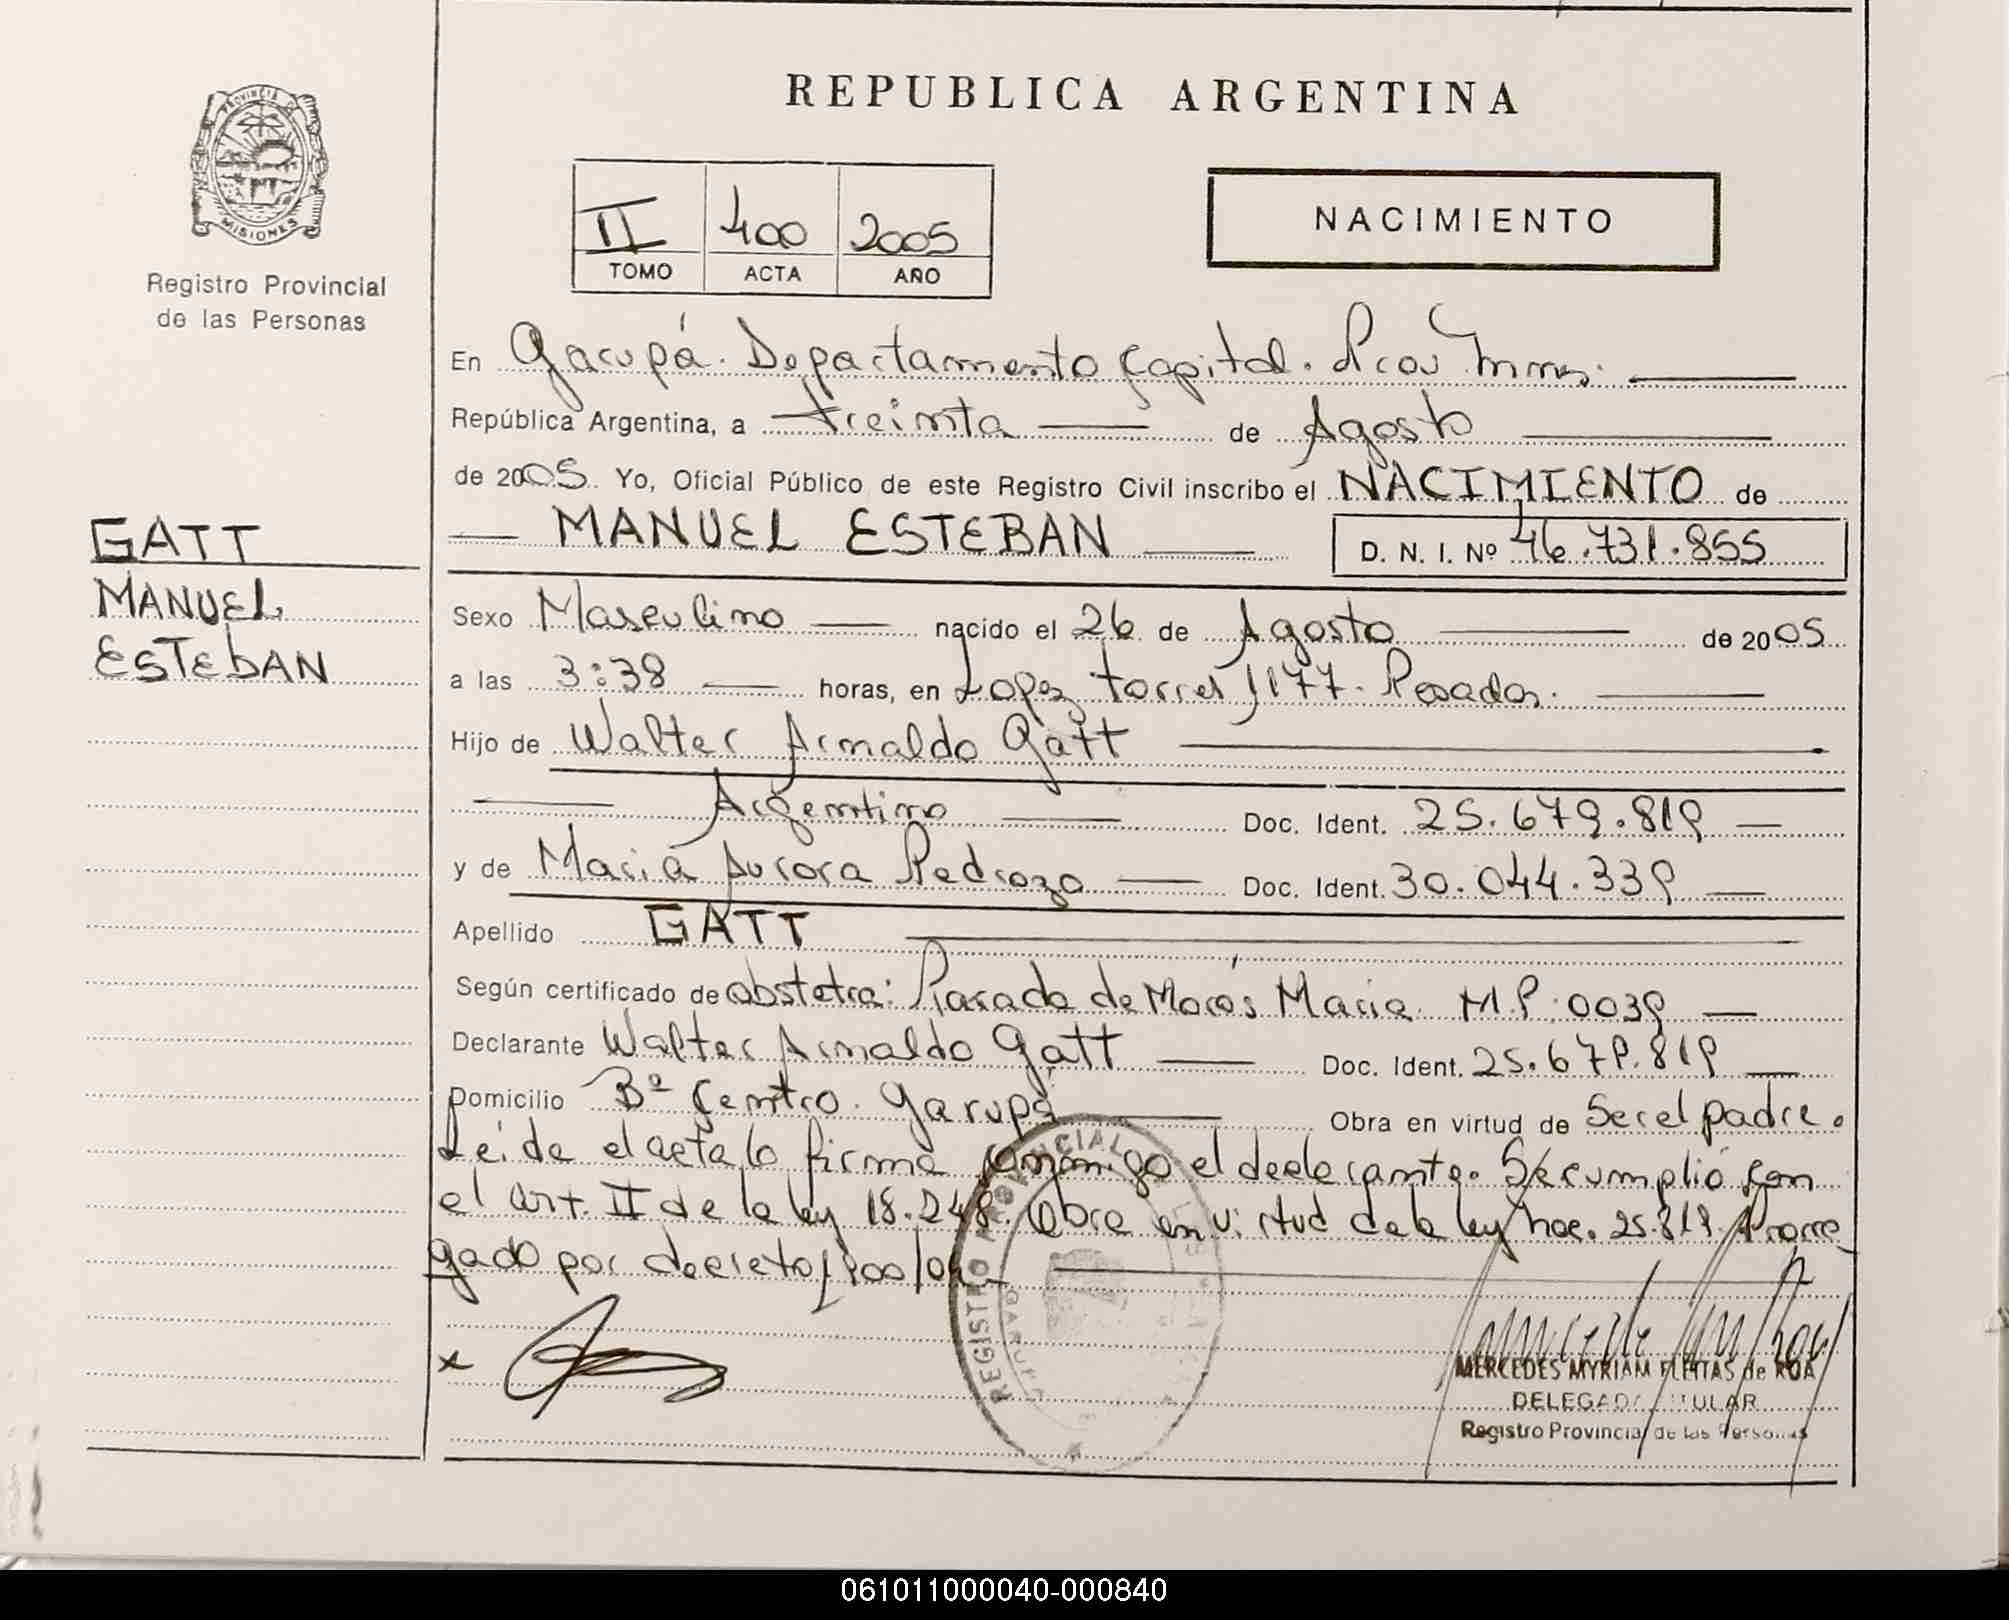 REPUBLICA ARGENTINA
PROVINCIA DE
MISIONES
Registro Provincial
de las Personas
II 400 2005
TOMO ACTA AÑO
NACIMIENTO
En Garupá. Departamento Capital. Prov Mnes.
República Argentina, a treinta de Agosto
de 2005. Yo, Oficial Público de este Registro Civil inscribo el NACIMIENTO de
MANUEL ESTEBAN D. N. I. Nº 46.731.855
GATT
MANUEL
ESTEBAN
Sexo Masculino nacido el 26 de Agosto de 2005
a las 3:38 horas, en Lopez Torres 1177. Posadas.
Hijo de Walter Arnaldo Gatt
Argentino Doc. Ident. 25.679.819
y de María Aurora Pedrozo Doc. Ident. 30.044.339
Apellido GATT
Según certificado de obstetra: Parada de Morós Maria M.P. 0039
Declarante Walter Arnaldo Gatt Doc. Ident. 25.679.819
Domicilio Bº Centro. Garupá Obra en virtud de Ser el padre.
Leída el acta lo firma conmigo el declarante. Se cumplió con
el art. II de la ley 18.248. Obra en virtud de la ley nac. 25.819. Prorro
gado por decreto
x
REGISTRO PROVINCIAL
GARUPA
MERCEDES MYRIAM FLEITAS de ROA
DELEGADA TITULAR
Registro Provincial de las Personas
061011000040-000840